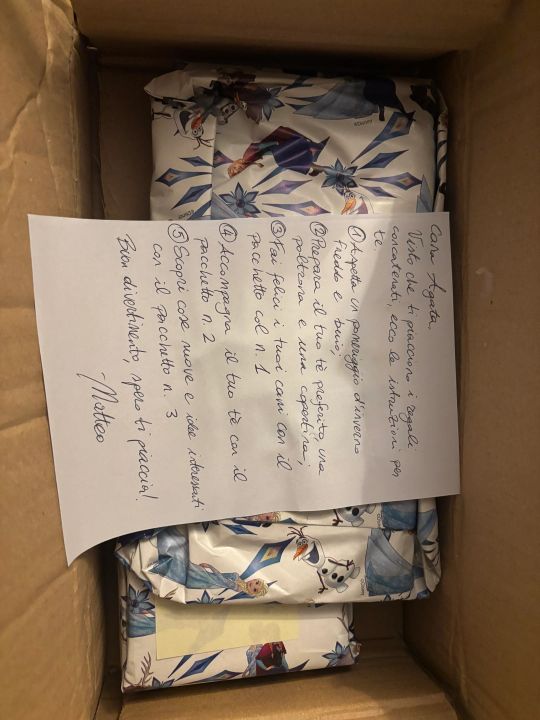 Cara Agata,
Visto che ti piacciono i regali
concatenati, ecco le istruzioni per
te.
① Aspetta un pomeriggio d'inverno
freddo e buio;
② Prepara il tuo tè preferito, una
poltrona e una copertina;
③ Fai felici i tuoi cani con il
pacchetto col n. 1
④ Accompagna il tuo tè con il
pacchetto n. 2
⑤ Scopri cose nuove e idee interessanti
con il pacchetto n. 3
Buon divertimento, spero ti piaccia!
-Matteo
©Disney